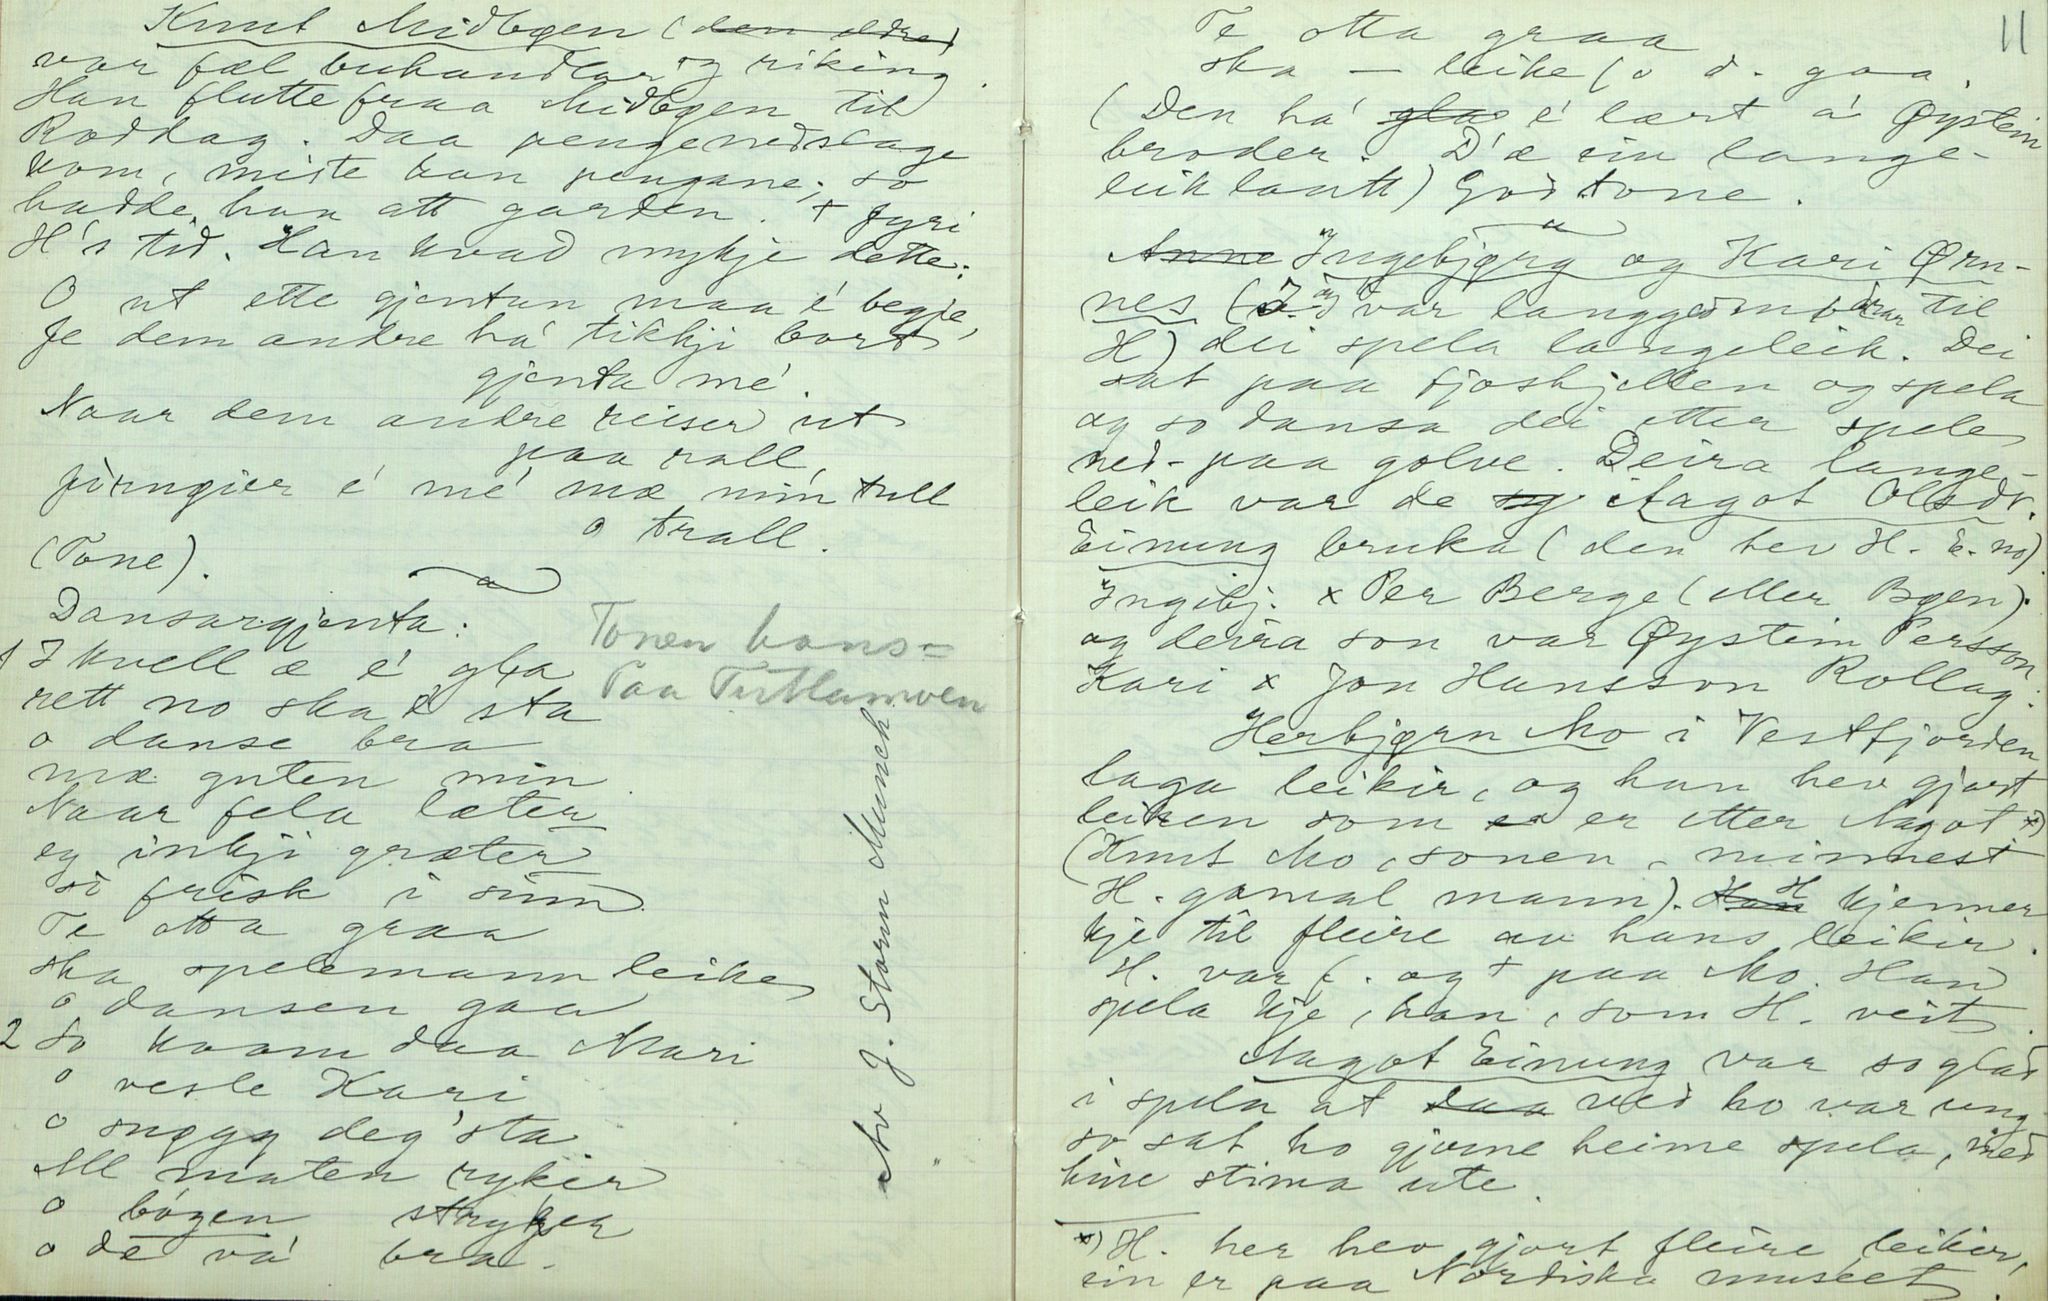 Knut Midbøen (den eldre)
var fæl buhandlar og riking.
Han flutte fraa Midbøen til
Roddag. Daa pengenedslage
kom, miste han pengane, so
hadde han att garden. + fyri
H's tid. Han kvad mykje dette:
O ut ette gjentun maa é begje,
Je dem andre há tikkji bort
gjenta mé.
Naar dem andre reiser ut
paa rall,
firngier é mé mæ min tull
o trall.
(Tone).
Dansargjenta:
1 I kvell æ é gla
rett no ska é sta
o danse bra
mæ guten min
Naar fela læter
eg inkji græter
so frisk i sinn
Te otta graa
ska spelemann leike
o dansen gaa
2 So kvam daa Mari
o vesle Kari
o snøgg deg' sta
All maten rykir
o bógen stryker
o de vá bra.
Tonen hans =
Paa Tutlamoen
Av J. Storm Munch
11
Te otta graa
ska — leike (o d. gaa.
(Den há gla é lært á Øystein
broder. D'æ ein lange-
leiklaatt) God tone.
Anne Ingebjørg og Kari Ørn-
nes (var langgom til
H) dei spela langeleik. Dei
sat paa fjoshjellen og spela
og so dansa dei etter spele
ned-paa golve. Deira lange-
leik var de og Aagot Olsdr.
Einung bruka (den hev H. E. no).
Ingibj. x Per Berge (eller Bøen).
og deira son var Øystein Persson.
Kari x Jon Hansson Rollag.
Herbjørn Mo i Vestfjorden
laga leikir, og han hev gjort
leiken som er etter Aagot. x)
(Knut Mo, sonen, minnest
H. gamal mann). Han H kjenner
kje til fleire av hans leikir.
H. var f. og + paa Mo. Han
spela kje, han, som H. veit.
Aagot Einung var so glad
i spela at daa ved ho var ung
so sat ho gjerne heime spela, med
hine stima ute.
x) H. her hev gjort fleire leikir,
ein er paa Nordiska museet.